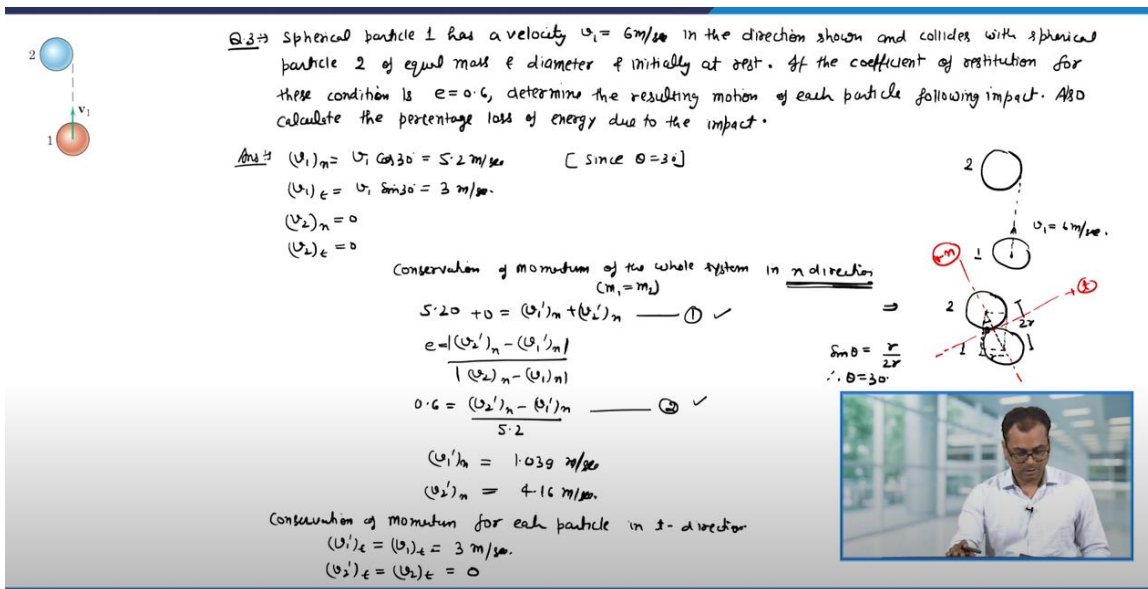 Q.3→ Spherical particle 1 has a velocity v₁ = 6m/sec in the direction shown and collides with spherical
particle 2 of equal mass & diameter & initially at rest. If the coefficient of restitution for
these condition is e=0.6, determine the resulting motion of each particle following impact. Also
calculate the percentage loss of energy due to the impact.
2
v₁
1
Ans→ (v₁)ₙ = v₁ cos30° = 5.2 m/sec [since θ=30°]
(v₁)t = v₁ Sin30° = 3 m/sec.
(v₂)ₙ = 0
(v₂)t = 0
Conservation of momentum of the whole system in n direction
(m₁ = m₂)
5.20 + 0 = (v₁')ₙ + (v₂')ₙ —— ① ✓
e = |(v₂')ₙ - (v₁')ₙ|
|(v₂)ₙ - (v₁)ₙ|
0.6 = (v₂')ₙ - (v₁')ₙ —— ② ✓
5.2
(v₁')ₙ = 1.039 m/sec
(v₂')ₙ = 4.16 m/sec.
Conservation of momentum for each particle in t-direction
(v₁')t = (v₁)t = 3 m/sec.
(v₂')t = (v₂)t = 0
2
v₁ = 6m/sec.
1
n
t
⇒
2
2r
1
Sinθ = r/2r
∴ θ=30°